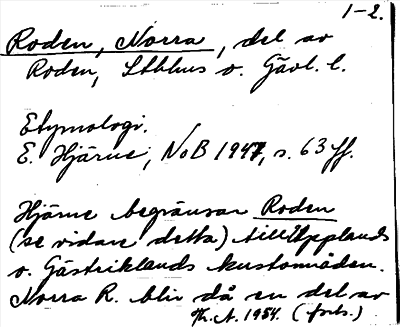 1-2.
Roden, Norra, del av
Roden, Sthlms o. Gävl. l.
Etymologi.
E. Hjärne, NoB 1947, s. 63 ff.
Hjärne begränsar Roden
(se vidare detta) till Upplands
o. Gästriklands kustområden.
Norra R. blir då en del av
Th. A. 1954. (forts.)